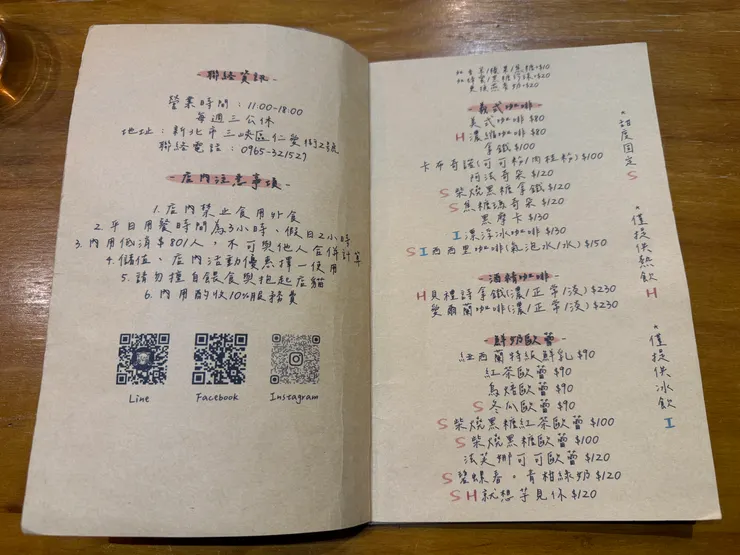 聯絡資訊-
營業時間：11:00-18:00
每週三公休
地址：新北市三峽區仁愛街2號
聯絡電話：0965-321527
-店內注意事項-
1.店內禁止食用外食
2.平日用餐時間為3小時、假日2小時
3.內用低消$80/人，不可與他人合併計算
4.儲值、店內活動優惠擇一使用
5.請勿擅自餵食與抱起店貓
6.內用酌收10%服務費
Line
Facebook
Instagram
加香草/榛果/焦糖+$10
加蜂蜜/黑糖珍珠+$20
更換燕麥奶+$20
-義式咖啡-
美式咖啡 $80
H 濃縮咖啡 $80
拿鐵 $100
卡布奇諾(可可粉/肉桂粉) $100
阿法奇朵 $120
S 柴燒黑糖拿鐵 $120
S 焦糖瑪奇朵 $120
黑摩卡 $130
I 漂浮冰咖啡 $130
S I 西西里咖啡(氣泡水/水) $150
酒精咖啡-
H 貝禮詩拿鐵(濃/正常/淡) $230
愛爾蘭咖啡(濃/正常/淡) $230
-鮮奶歐蕾
紐西蘭特級鮮乳 $90
紅茶歐蕾 $90
烏焙歐蕾 $90
S 冬瓜歐蕾 $90
S 柴燒黑糖紅茶歐蕾 $100
S 柴燒黑糖歐蕾 $100
法芙娜可可歐蕾 $120
S 碧螺春·青柑綠奶 $120
S H 就想芋見你 $120
*甜度固定 S
*僅提供熱飲 H
*僅提供冰飲 I